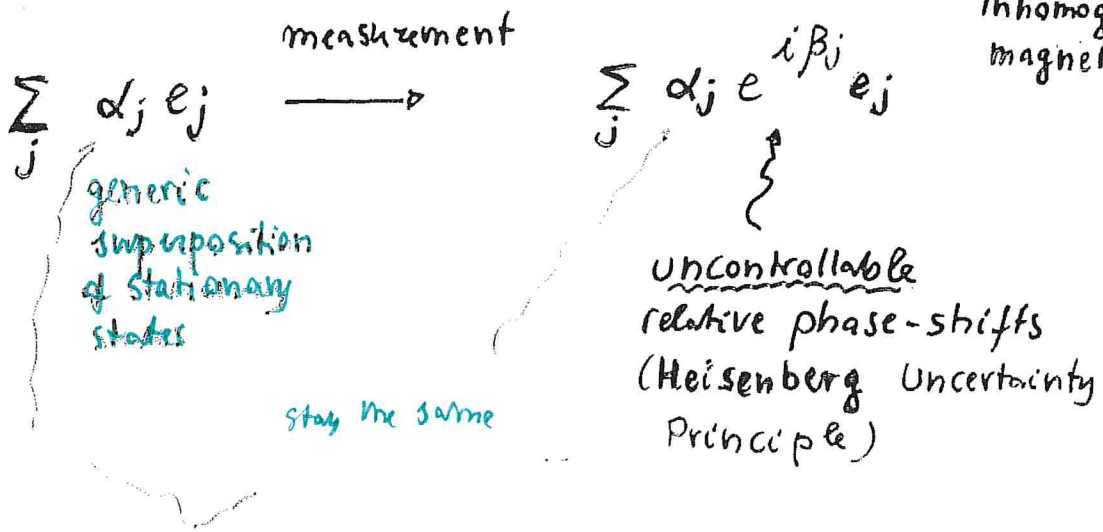 inhomog
magne
measurement
∑_j α_j e_j ⟶ ∑_j α_j e^{iβ_j} e_j
generic
superposition
of stationary
states
uncontrollable
relative phase-shifts
(Heisenberg Uncertainty
Principle)
stay the same